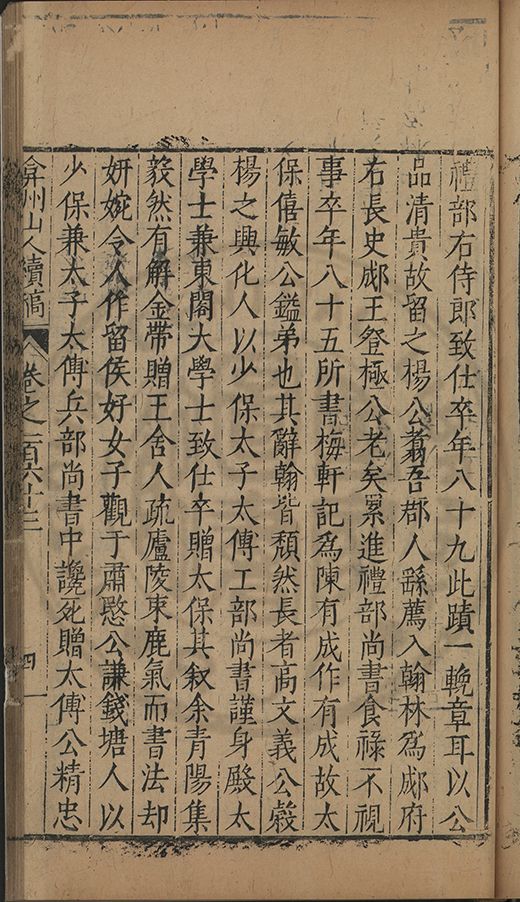 禮部右侍郎致仕卒年八十九此蹟一輓章耳以公
品清貴故留之楊公翥吾郡人繇薦入翰林爲郕府
右長史郕王登極公老矣累進禮部尚書食祿不視
事卒年八十五所書梅軒記爲陳有成作有成故太
保僖敏公鎰弟也其辭翰皆頹然長者高文義公糓
楊之興化人以少保太子太傅工部尚書謹身殿太
學士兼東閣大學士致仕卒贈太保其叙余青陽集
毅然有解金帶贈王舍人疏廬陵束鹿氣而書法却
妍婉令人作留侯好女子觀于肅愍公謙錢塘人以
少保兼太子太傅兵部尚書中讒死贈太傅公精忠
弇州山人續稿 卷之一百六十三 四